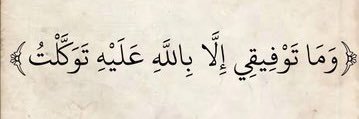 ﴿وَمَا تَوْفِيقِي إِلَّا بِاللَّهِ عَلَيْهِ تَوَكَّلْتُ﴾